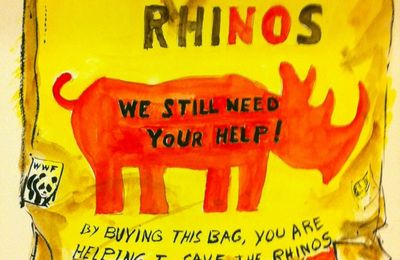 RHINOS
WE STILL NEED
YOUR HELP!
WWF
BY BUYING THIS BAG, YOU ARE
HELPING T SAVE THE RHINOS